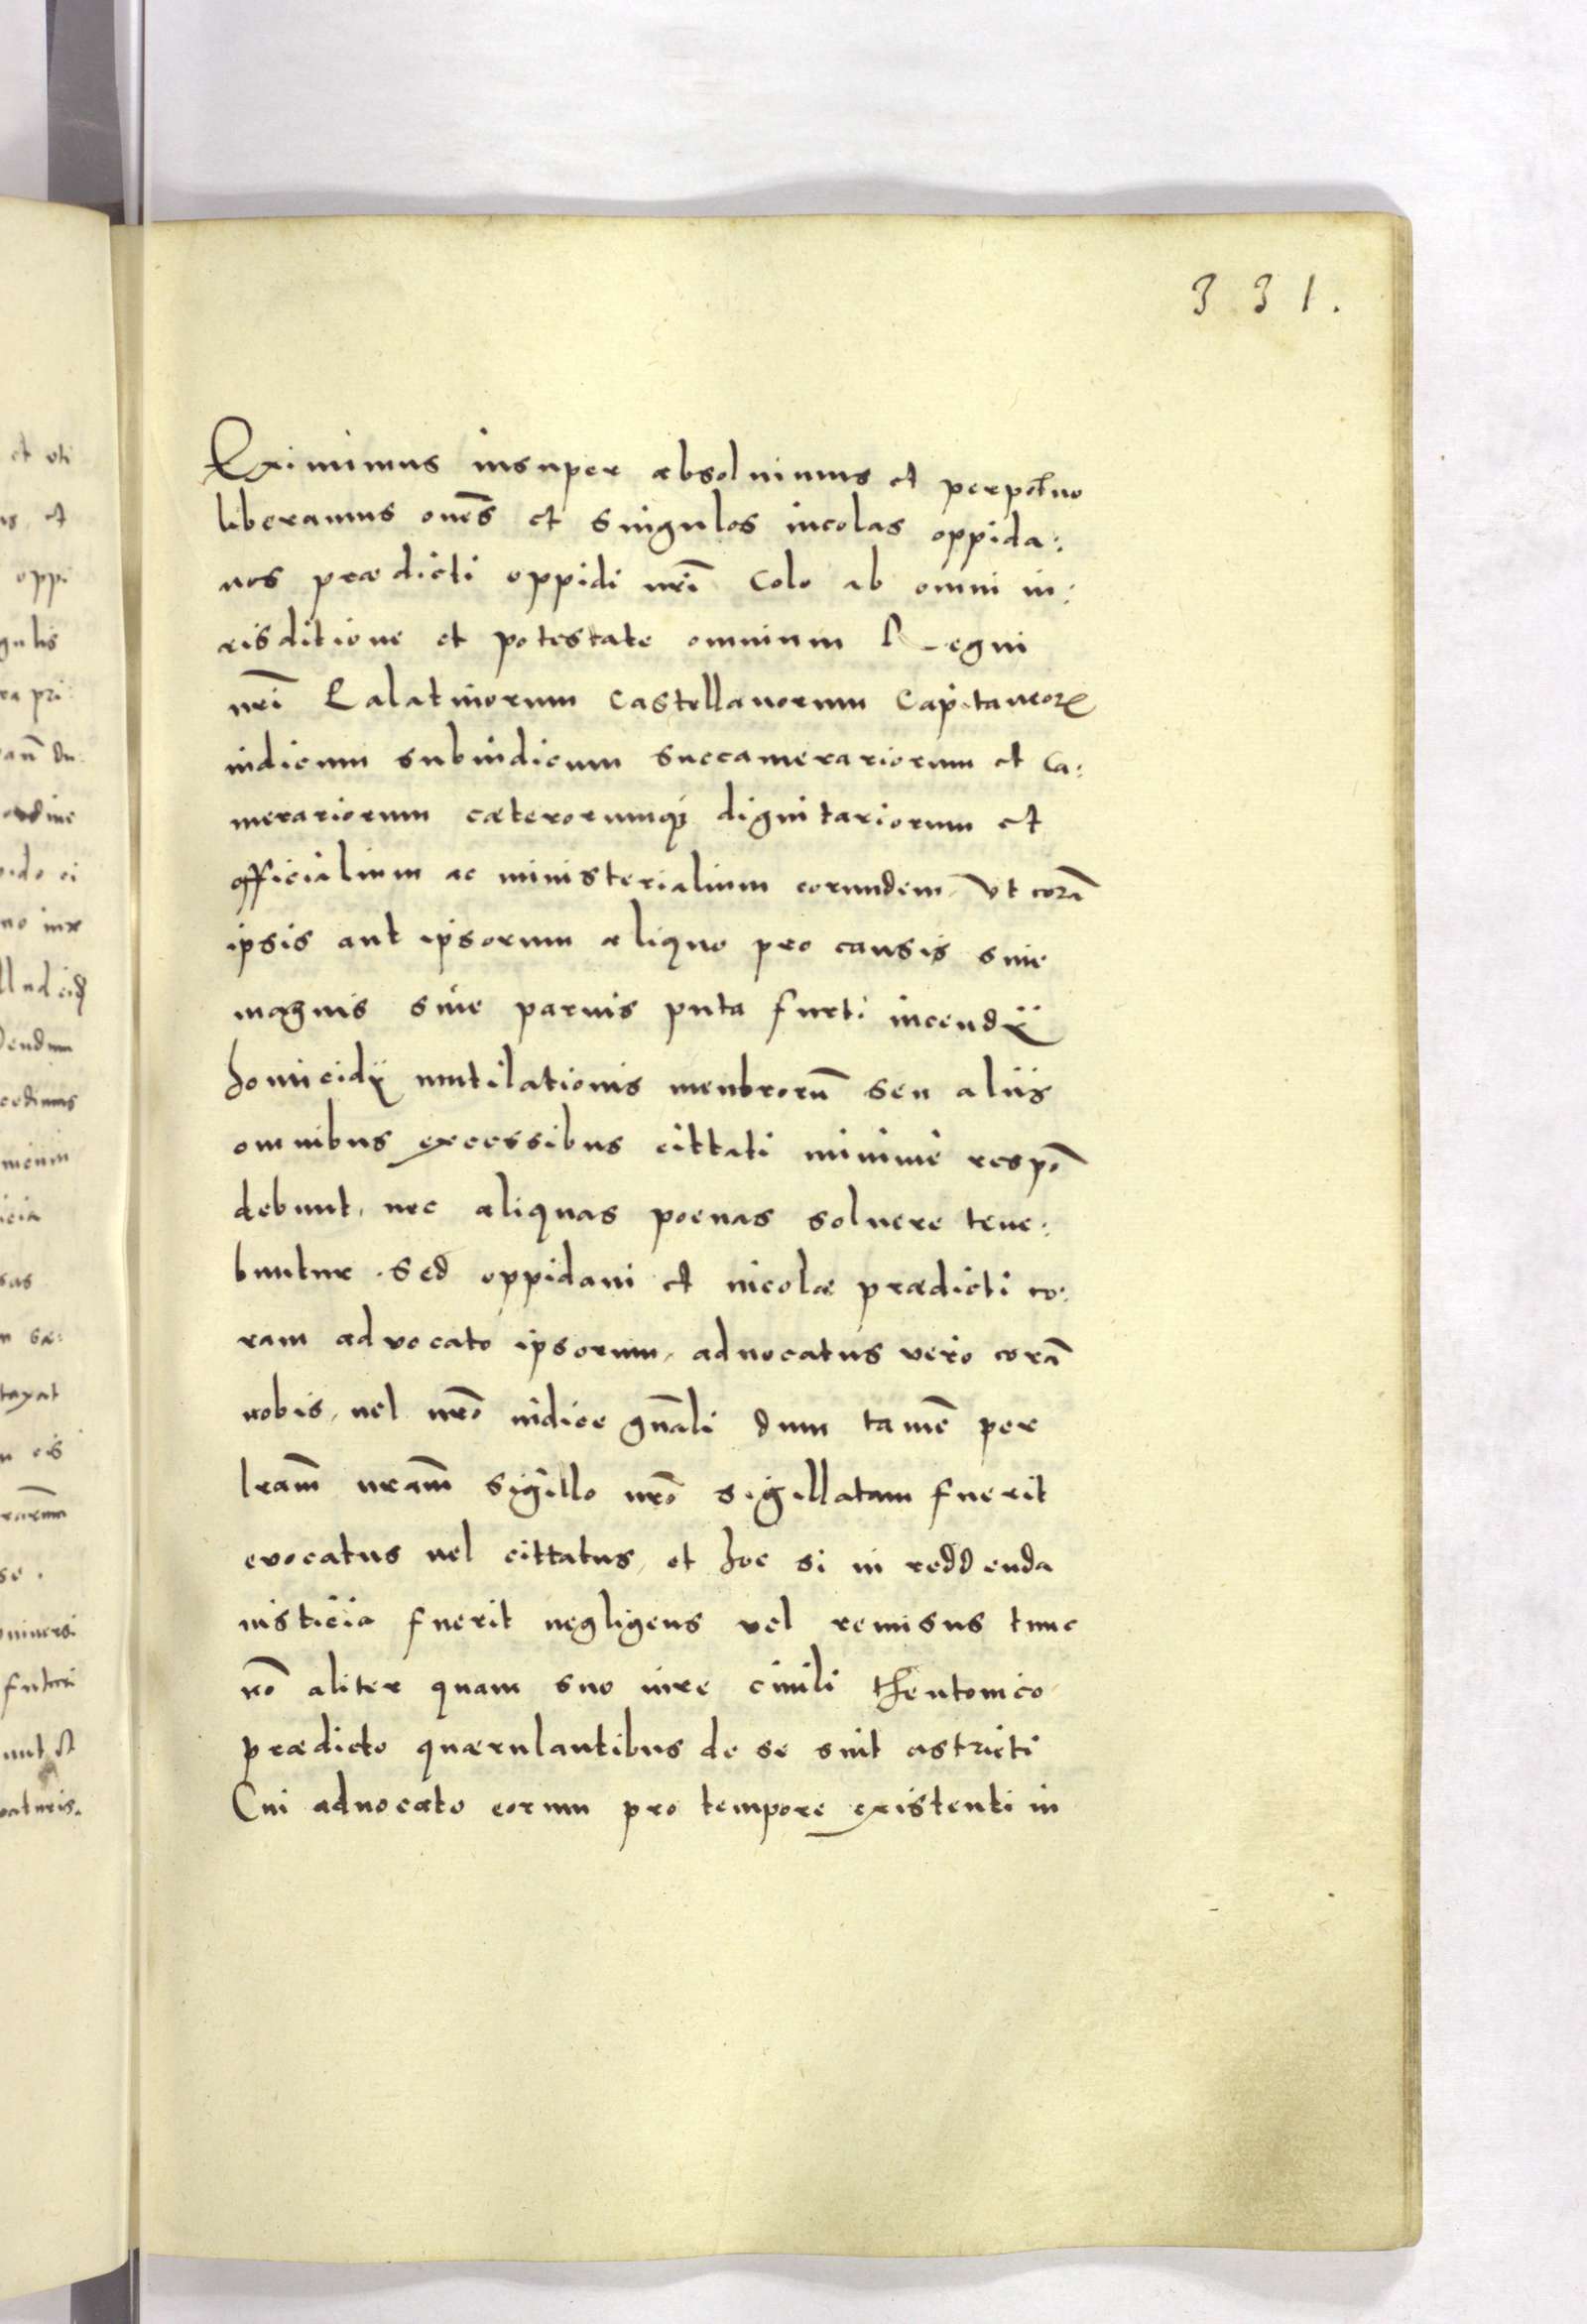 331.
Eximimus insuper absoluimus et perpetuo
liberamus oẽs et singulos incolas oppida:
nos prædicti oppidi nr̃i Colo ab omni iu:
risditione et potestate omnium Regni
nr̃i Palatinorum Castellanorum Capitaneorꝝ
iudicum subiudicum succamerariorum et Ca:
merariorum cæterorumqȝ dignitariorum et
officialium ac ministerialium eorundem. Vt corã
ipsis aut ipsorum aliquo pro causis siue
magnis siue paruis puta furti incendÿ
homicidÿ mutilationis menbrorũ seu aliis
omnibus excessibus cittati minime respõ
debunt, nec aliquas poenas soluere tene:
buntur. Sed oppidani et incolæ prædicti co:
ram advocato ipsorum, aduocatus vero corã
nobis, uel nr̃o iudice gñali dum tamẽ per
lr̃am nr̃am sigillo nr̃o sigillatam fuerit
evocatus uel cittatus, et hoc si in reddenda
iusticia fuerit negligens vel remisus tunc
nõ aliter quam suo iure ciuili theutonico
prædicto quærulantibus de se sint astricti
Cui aduocato eorum pro tempore existenti in